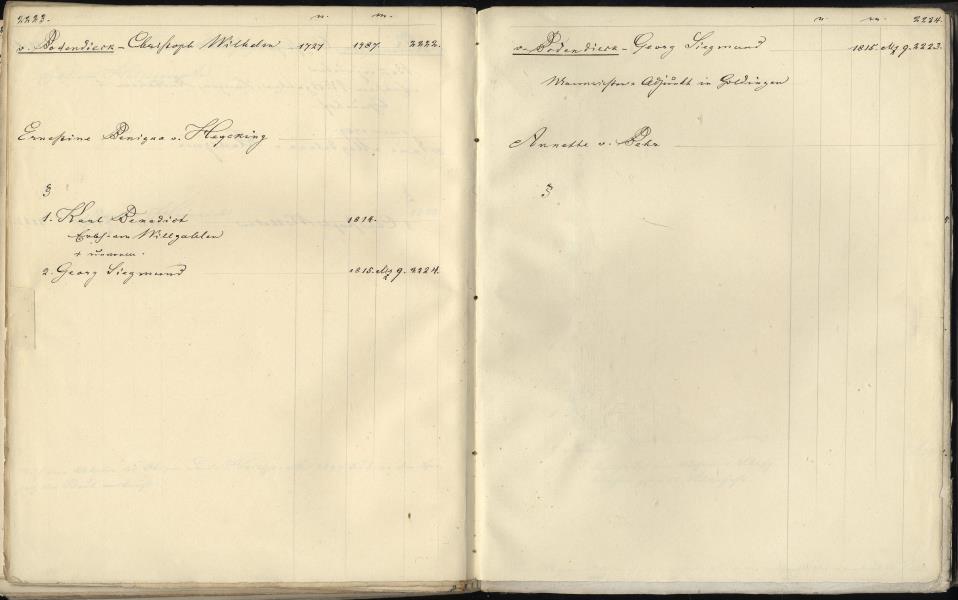 2223. n. m.
v. Bodendieck - Christoph Wilhelm 1727 1787 2222.
Ernestine Benigna v. Heycking
3
1. Karl Benedict 1814.
Erbh. von Willgahlen
+ unverm.
2. Georg Siegmund 1815. 9. 2224.
n. m. 2224.
v. Bodendieck - Georg Siegmund 1815. 9. 2223.
Mannrichter Adjunkt in Goldingen
Annette v. Behr
3